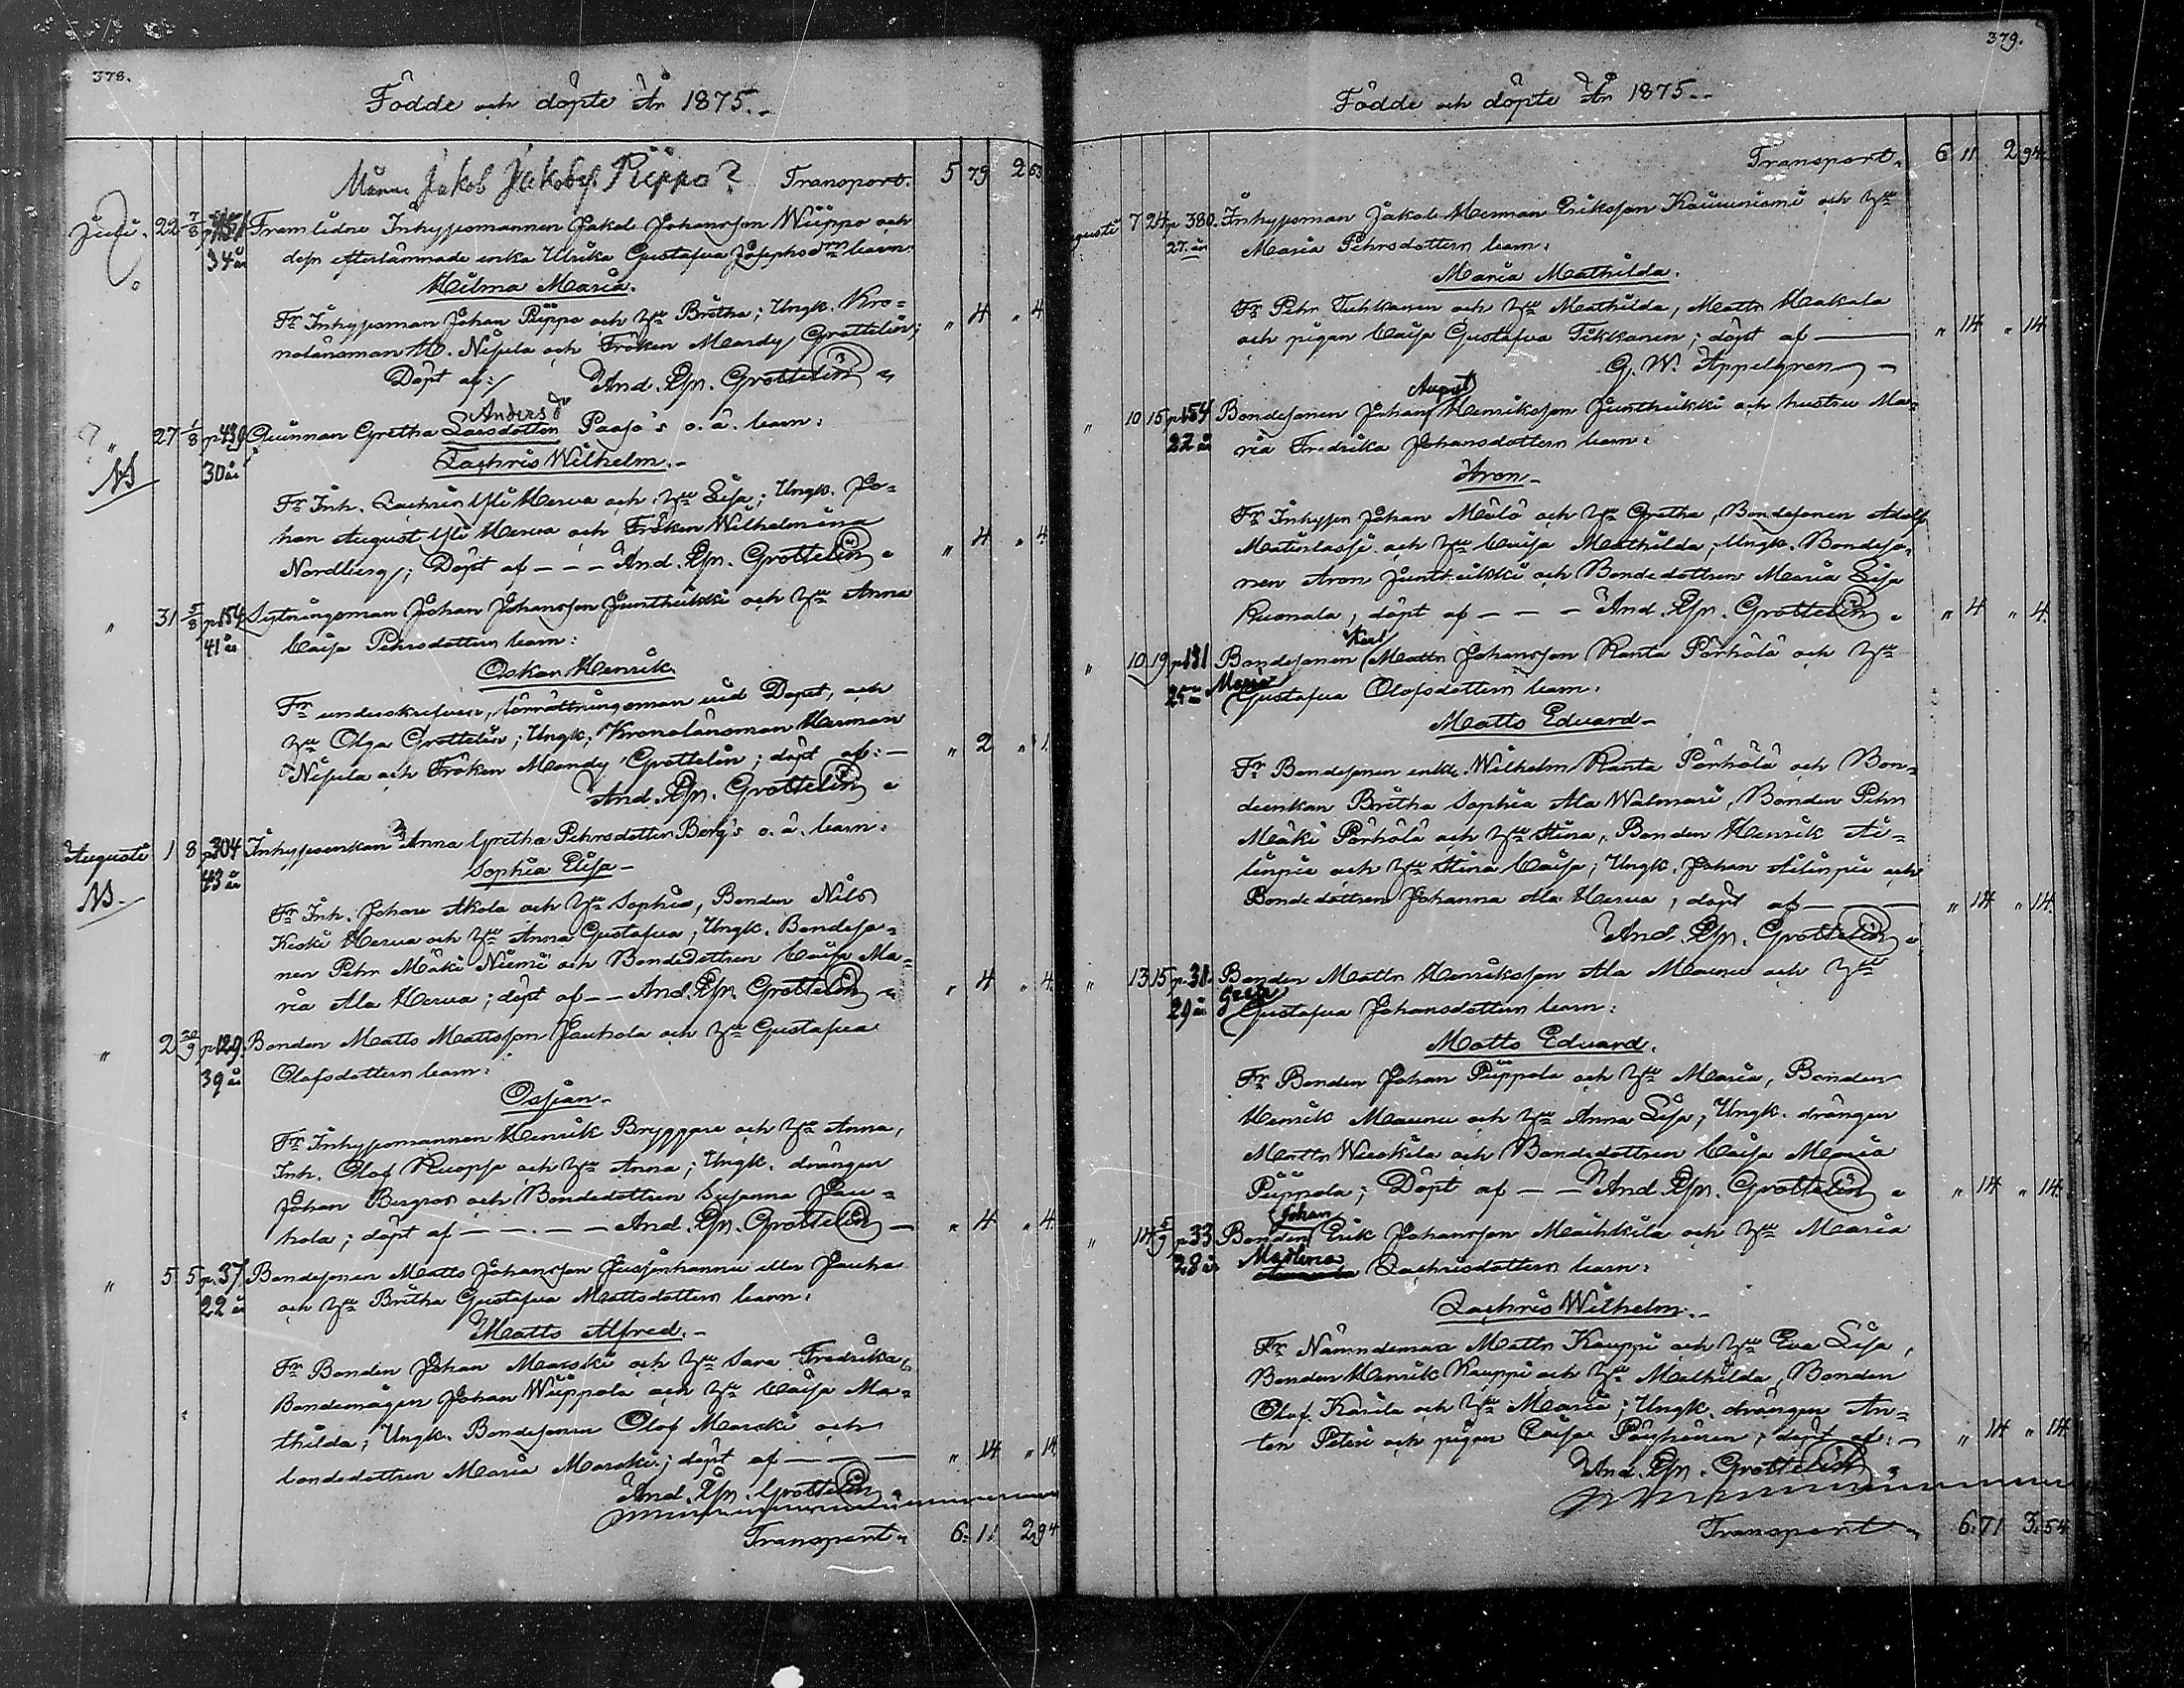 378.
Födde och döpte År 1875.
Månne Jakob Jakobss. Piippo? Transport. 5 79 2 63
Juli. 22 7/8 34 år Framlidne Inhysesmannen Jakob Johansson Wiippo och
dess efterlämnade enka Ulrika Gustafva Josephsdrn barn:
Hilma Maria.
Fr Inhysesman Johan Piippo och Hu Britha; Ungk. Kro=
nolänsman H. Nissula och Fröken Mandy Grottelin; " 4 " 4
Döpt af: And. Joh. Grottelin
Anders dr
" 27 1/8 p 439 Qvinnan Gretha Larsdotter Paaso's o.ä. barn:
30 år Zachris Wilhelm.
NB
Fr Inh. Zachris Yli Herva och Hu Lisa; Ungk. Jo=
han August Yli Herva och Fröken Wilhelmina
Nordberg; Döpt af - - - And. Joh. Grottelin " 4 " 4
" 31 5/8 p 154 Sytningsman Johan Johansson Juntheikki och Hu Anna
41 år Caisa Pehrsdotters barn:
Oskar Henrik
Fr underskrifven, förrättningsman vid Dopet, och
Hu Olga Grottelin; Ungk. Kronolänsman Herman
Nissula och Fröken Mandy Grottelin; döpt af: - " 2 " 1
And. Joh. Grottelin
Augusti 1 8 p 304 Inhysesenkan Anna Gretha Pehrsdotter Berg's o.ä. barn:
43 år Sophia Elisa -
NB.
Fr Inh. Johan Akola och Hu Sophia, Bonden Nils
Keski Herva och Hu Anna Gustafva; Ungk. Bondeso=
nen Pehr Mäki Niemi och Bondedottren Caisa Ma=
ria Ala Herva; döpt af - - And. Joh. Grottelin " 4 " 4
" 2 20/9 p 129. Bonden Matts Mattsson Jauhola och Hu Gustafva
39 år Olofsdotters barn:
Ossian -
Fr Inhysesmannen Henrik Bryggare och Hu Anna,
Inh. Olof Ruopsa och Hu Anna; Ungk. drängen
Johan Bergros och Bondedottren Susanna Jau=
hola; döpt af - - - - And. Joh. Grottelin - " 4 " 4
" 5 5 p. 37. Bondesonen Matts Johansson Jussinhannu eller Jauho
22 år och Hu Britha Gustafva Mattsdotters barn:
Matts Alfred. -
Fr Bonden Johan Marski och Hu Sara Fredrika,
Bondemågen Johan Wiippola och Hu Caisa Ma=
thilda; Ungk. Bondesonen Olof Marski och
bondedottren Maria Marski; döpt af - - - " 14 " 14
And. Joh. Grottelin
Transport. 6: 11 2 94
379.
Födde och döpte År 1875.
Transport. 6 11 2 94
Augusti 7 24 p 380. Inhysesman Jakob Herman Eriksson Kauniismi och Hu
27 år Maria Pehrsdotters barn:
Maria Mathilda.
Fr Pehr Tuhkanen och Hu Mathilda, Matts Hakala
och pigan Caisa Gustafva Tikkanen; döpt af - " 14 " 14
G. W. Appelgren
August
" 10 15 p 154 Bondesonen Johan Henriksson Juntheikki och hustru Ma=
22 år ria Fredrika Johansdotters barn:
Aron -
Fr Inhysen Johan Mölö och Hu Gretha, Bondesonen Adolf
Matinlassi och Hu Caisa Mathilda; Ungk. Bondeso=
nen Aron Juntheikki och Bondedottren Maria Lisa
Ruonala; döpt af - - - And. Joh. Grottelin " 4 " 4
Karl
" 10 19 p 131 Bondesonen Matts Johansson Ranta Pörhölä och Hu
25 år Maria Gustafva Olofsdotters barn:
Matts Eduard -
Fr Bondesonen enkl. Wilhelm Ranta Pörhölä och Bon=
deenkan Britha Sophia Ala Walmari, Bonden Pehr
Mäki Pörhölä och Hu Stina, Bonden Henrik Ai=
linpie och Hu Stina Caisa; Ungk. Johan Ailinpie och
Bondedottren Johanna Ala Herva; döpt af - - - " 14 " 14
And. Joh. Grottelin
" 13 15 p. 31. Bonden Matts Henriksson Ala Maunu och Hu
29 år Greta Gustafva Johansdotters barn:
Matts Eduard.
Fr Bonden Johan Piippola och Hu Maria, Bonden
Henrik Maunu och Hu Anna Lisa; Ungk. drängen
Matts Wirkkula och Bondedottren Caisa Maria
Piippola; Döpt af - - And. Joh. Grottelin " 14 " 14
Johan
" 14 5/9 p 33 Bonden Erik Johansson Maihkila och Hu Maria
28 år Madlena Zachrisdotters barn:
Zachris Wilhelm. -
Fr Nämndeman Matts Kauppi och Hu Eva Lisa,
Bonden Henrik Kauppi och Hu Mathilda, Bonden
Olof Karila och Hu Maria; Ungk. drängen An=
ton Peteri och pigan Caisa; döpt af: - " 14 " 14
And. Joh. Grottelin
Transport. 6: 71 3: 54